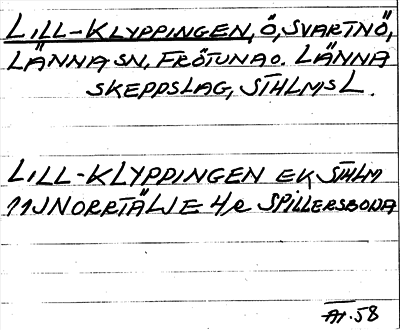 LILL-KLYPPINGEN, Ö, SVARTNÖ,
LÄNNA SN, FRÖTUNA O. LÄNNA
SKEPPSLAG, STHLMS L.
LILL-KLYPPINGEN EK, STHLM
11J NORRTÄLJE 4/e SPILLERSBODA
58